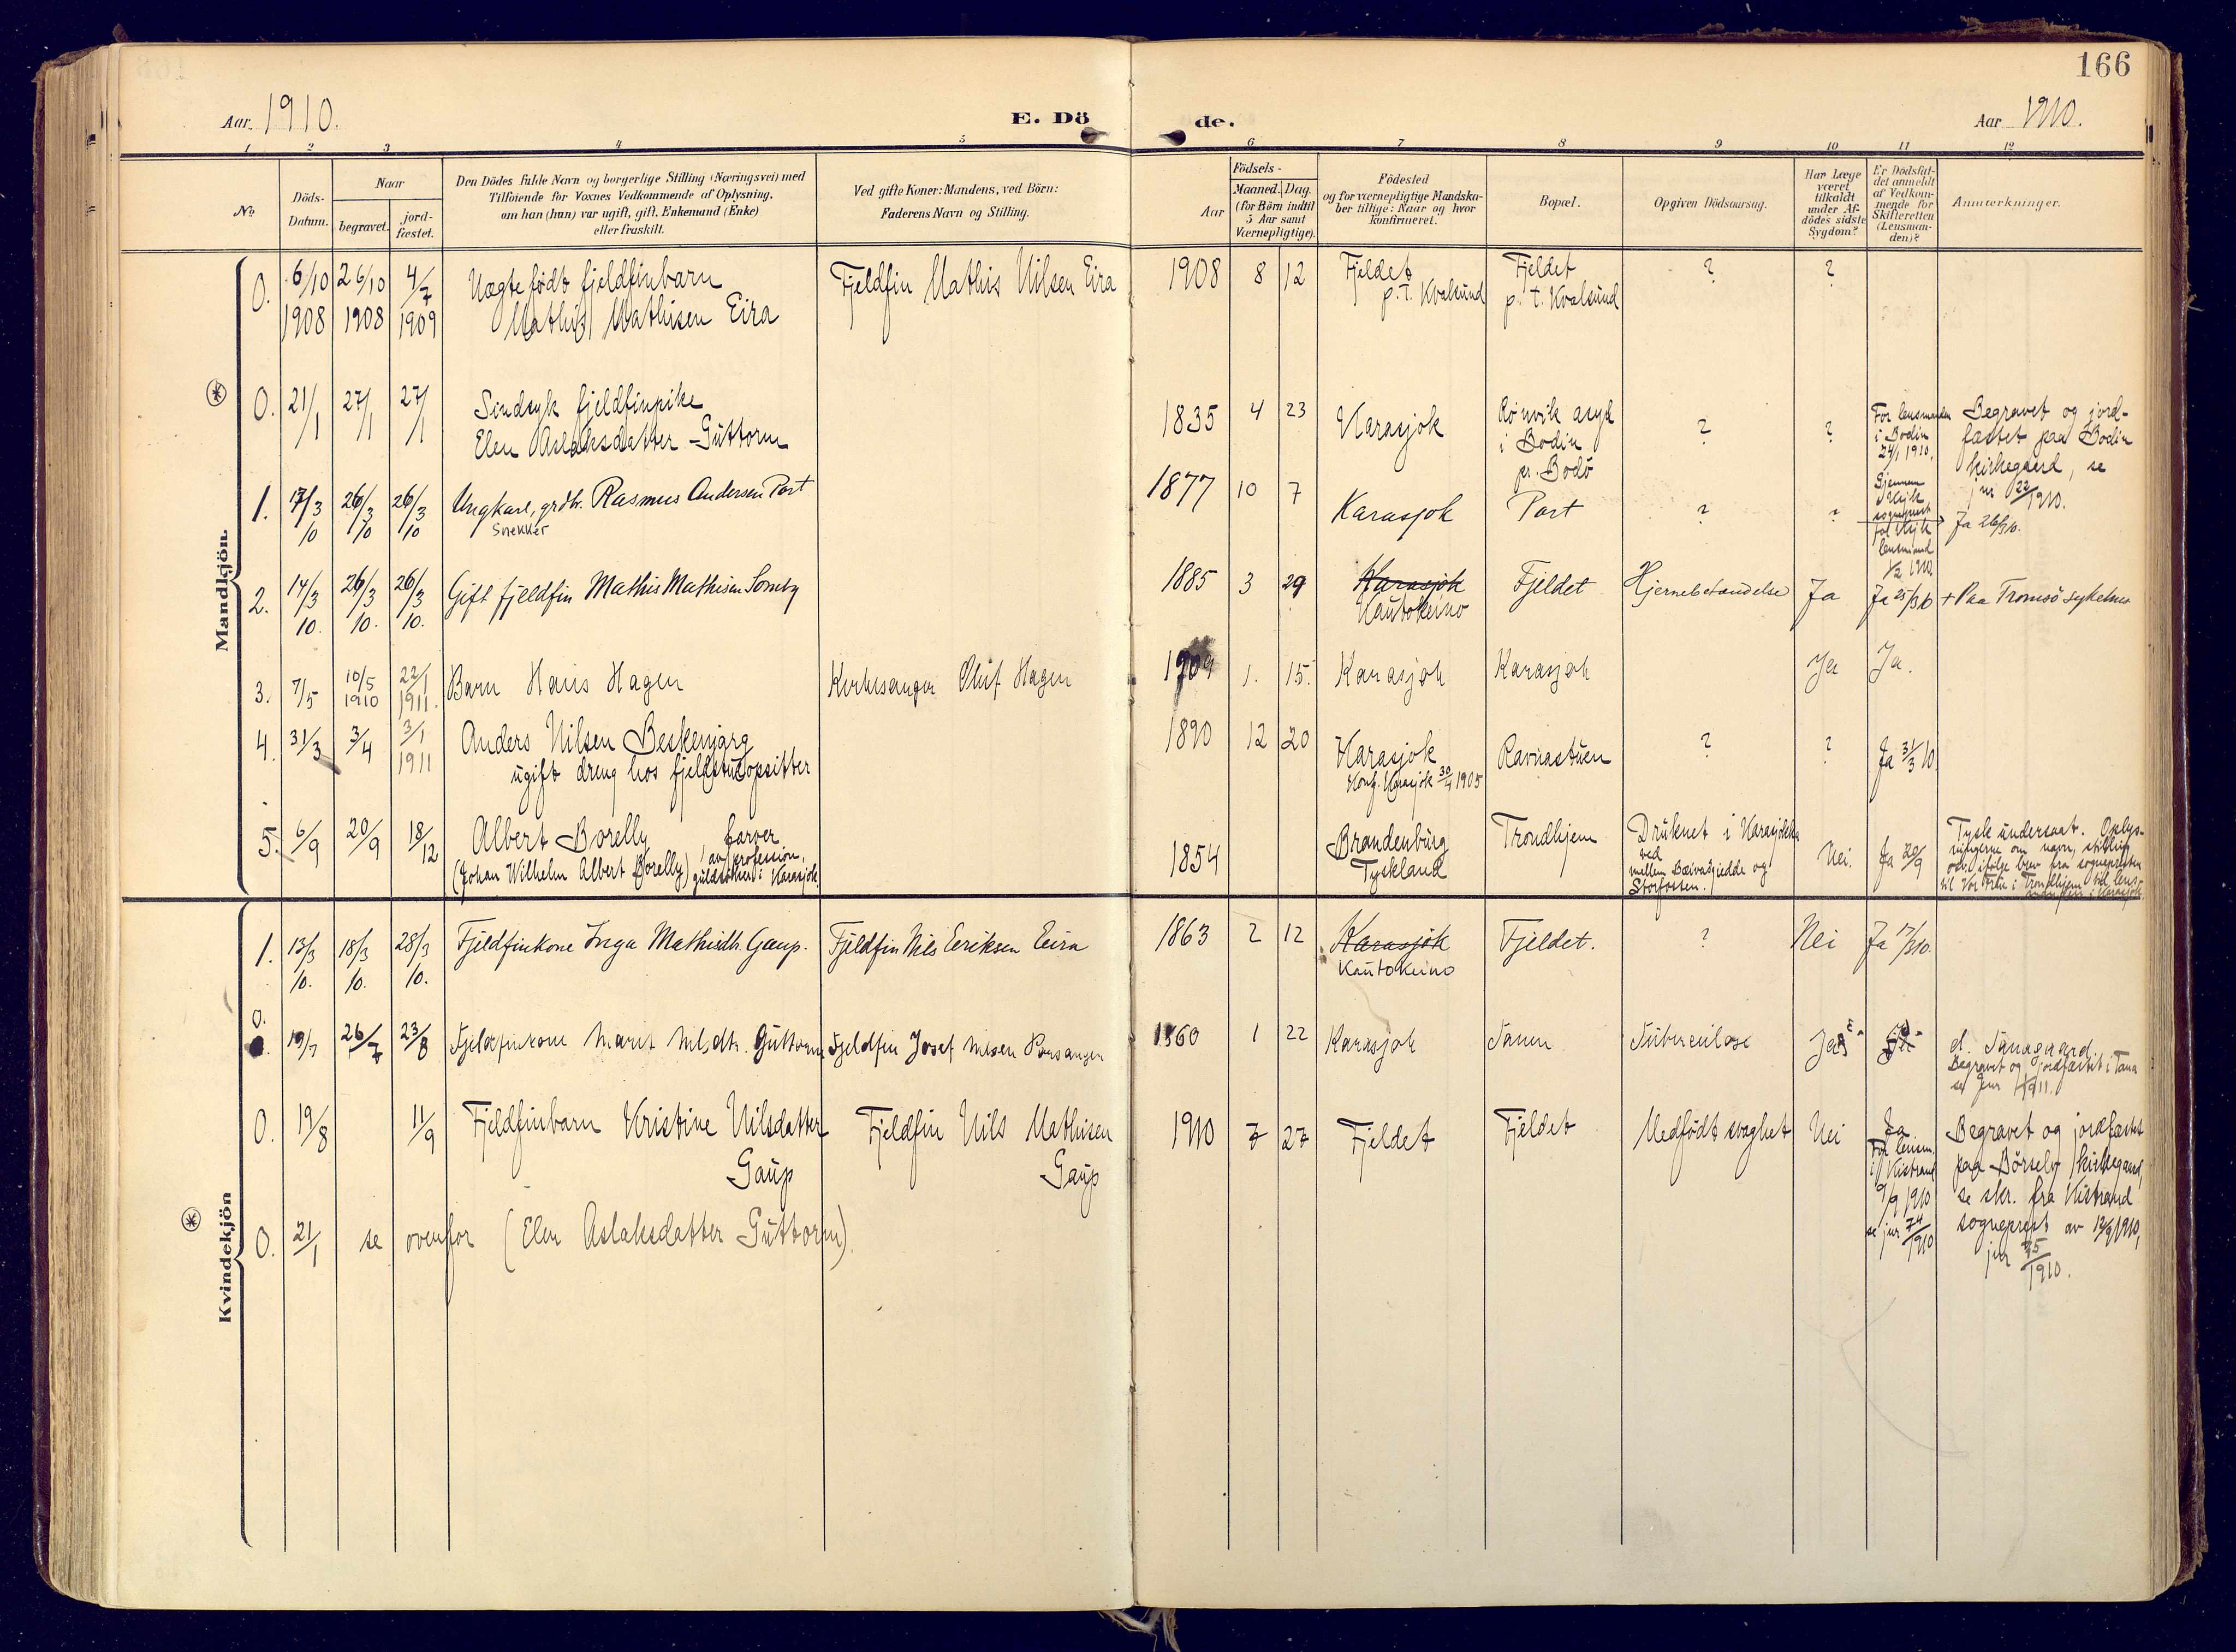 166
Aar 1910.
E. Dö de.
Aar 1910.
1 2 3 4 5 6 7 8 9 10 11 12
No.
Döds-
Datum.
Naar
begravet.
jord-
fæstet.
Den Dödes fulde Navn og borgerlige Stilling (Næringsvei) med
Tilföiende for Voxnes Vedkommende af Oplysning,
om han (hun) var ugift, gift, Enkemand (Enke)
eller fraskilt.
Ved gifte Koner: Mandens, ved Börn:
Faderens Navn og Stilling.
Födsels-
Aar
Maaned. Dag.
(for Börn indtil
5 Aar samt
Værnepligtige).
Födested
og for værnepligtige Mandska-
ber tillige: Naar og hvor
konfirmeret.
Bopæl.
Opgiven Dödsaarsag.
Har Læge
været
tilkaldt
under Af-
dödes sidste
Sygdom?
Er Dödsfal-
det anmeldt
af Vedkom-
mende for
Skifteretten
(Lensman-
den)?
Anmærkninger.
Mandkjön.
0. 6/10 26/10 4/7 Uægte født fjeldfinbarn Fjeldfin Mathis Nilsen Eira 1908 8 12 Fjeldet Fjeldet ? ?
1908 1908 1909 Mathis Mathisen Eira p.t. Kvalsund p.t. Kvalsund
0. 21/1 27/1 27/1 Sindsyk fjeldfinpike 1835 4 23 Karasjok Rønvik asyl ? ? For lensmanden Begravet og jord-
Elen Aslaksdatter Guttorm i Bodin i Bodin fæstet paa Bodin
pr. Bodö 24/1 1910, kirkegaard, se
jnr 22/1910.
1. 17/3 26/3 26/3 Ungkarl, grdbr. Rasmus Andersen Port 1877 10 7 Karasjok Port ? ? Ja 26/3 10.
10 10 10 Snekker
Gjennem
lensmand
2. 14/3 26/3 26/3 Gift fjeldfin Mathis Mathisen Somby 1885 3 29 Karasjok Fjeldet Hjernebetændelse Ja Ja 25/3 10 + Paa Tromsö sykehus
10. 10. 10. Kautokeino
3. 7/5 10/5 22/1 Barn Hans Hagen Kirkesanger Oluf Hagen 1909 1. 15. Karasjok Karasjok Ja Ja.
1910 1911.
4. 31/3 3/4 3/1 Anders Nilsen Beskenjarg 1890 12 20 Karasjok Ravnastuen ? ? Ja 31/3 10.
1911 ugift dreng hos fjeldstueopsitter Konf. Karasjok 30/4 1905
5. 6/9 20/9 18/12 Albert Borelly farver 1854 Brandenburg Trondhjem Druknet i Karasjokka Nei. Ja 20/9 Tysk undersaat. Oplys-
(Johan Wilhelm Albert Borelly) av profession, Tyskland ved ningerne om navn, stilling
guldsöker i Karasjok. mellem Bæivasgiedde og osv. ifölge brev fra sognepresten
Storfossen. til Vor Frue i Trondhjem til lens-
manden i Karasjok.
Kvindekjön
1. 13/3 18/3 28/3 Fjeldfinkone Inga Mathisdtr. Gaup. Fjeldfin Nils Eeriksen Eira 1863 2 12 Karasjok Fjeldet. ? Nei Ja 17/3 10.
10. 10. 10. Kautokeino
0. 19/7 26/7 23/8 Fjeldfinkone Marit Nilsdtr. Guttorm Fjeldfin Josef Nilsen Porsanger 1860 1 22 Karasjok Tana Tuberculose Ja
d. Tanagaard
Begravet og jordfæstet i Tana
se jnr
0. 19/8 11/9 Fjeldfinbarn Kristine Nilsdatter Fjeldfin Nils Mathisen 1910 7 27 Fjeldet Fjeldet Medfödt svaghet Nei Ja Begravet og jordfæstet
Gaup Gaup For lensm. paa Börselv kirkegaard,
i Kistrand se skr. fra Kistrand
9/9 1910 sogneprest av 12/9 1910,
se jnr 74/1910 jnr 75/1910.
0. 21/1 se ovenfor (Elen Aslaksdatter Guttorm).